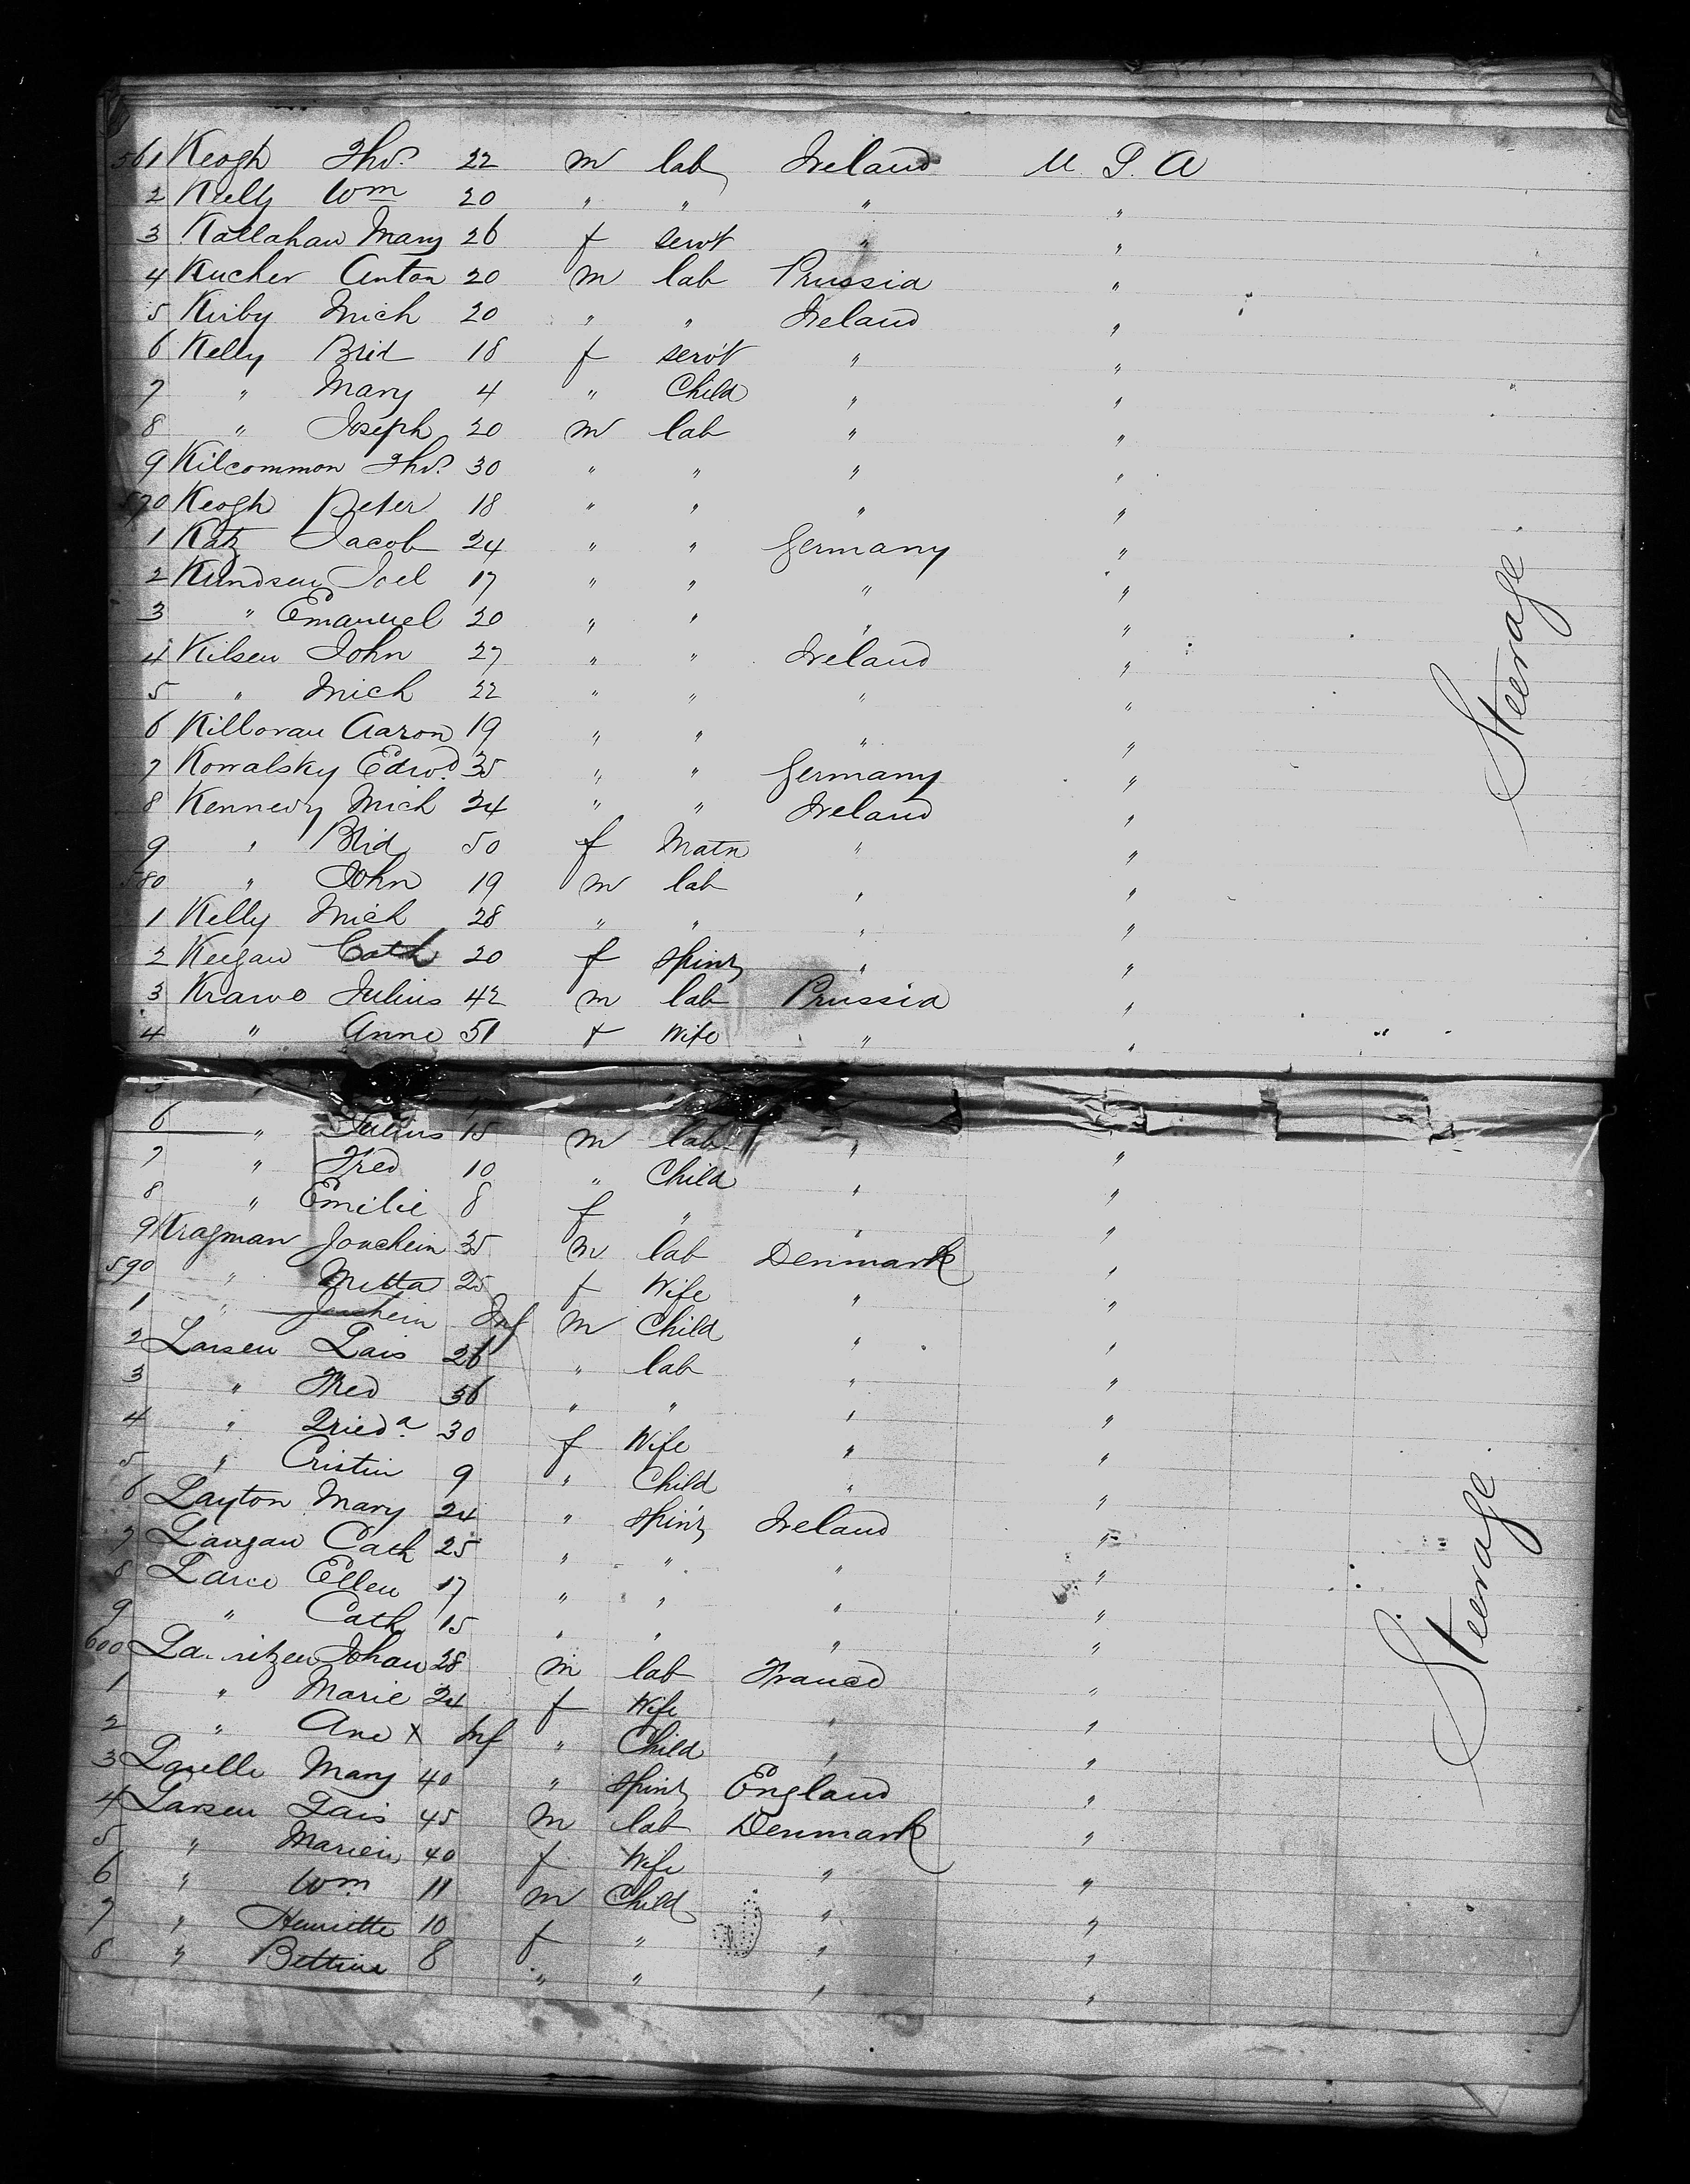 561 Keogh Thos. 22 m lab Ireland U. S. A
2 Kelly Wm 20 " " " "
3 Kallahan Mary 26 f servt " "
4 Kucher Anton 20 m lab Prussia "
5 Kirby Mich 20 " " Ireland "
6 Kelly Brid 18 f servt " "
7 " Mary 4 " Child " "
8 " Joseph 20 m lab " "
9 Kilcommon Thos. 30 " " " "
570 Keogh Peter 18 " " " "
1 Katz Jacob 24 " " Germany "
2 Kundsen Joel 17 " " " "
3 " Emanuel 20 " " " "
4 Kilsen John 27 " " Ireland "
5 " Mich 22 " " " "
6 Killoran Aaron 19 " " " "
7 Kowalsky Edwd. 35 " " Germany "
8 Kennedy Mich 24 " " Ireland "
9 " Brid 50 f Matn " "
580 " John 19 m lab " "
1 Kelly Mich 28 " " " "
2 Keegan Cath 20 f spinr " "
3 Krawo Julius 42 m lab Prussia "
4 " Anne 51 f Wife " "
Steerage
6 " Julius 15 m lab " "
7 " Fred 10 " Child " "
8 " Emilie 8 f " " "
9 Kragman Jouchein 35 m lab Denmark "
590 " Metta 25 f Wife " "
1 " Jouchein Inf m Child " "
2 Larsen Lais 26 " lab " "
3 " Fred 36 " " " "
4 " 30 f Wife " "
5 " Cristin 9 " Child " "
6 Layton Mary 24 " spinr Ireland "
7 Langan Cath 25 " " " "
8 Ellen 17 " " " "
9 " Cath 15 " " " "
600 Johan 28 m lab France "
1 " Marie 24 f Wife " "
2 " Ane x Inf " Child " "
3 Mary 40 " spinr England "
4 Larsen Lais 45 m lab Denmark "
5 " 40 f Wife " "
6 " Wm 11 m Child " "
7 " Henriette 10 f " " "
8 " Bettine 8 " " " "
Steerage